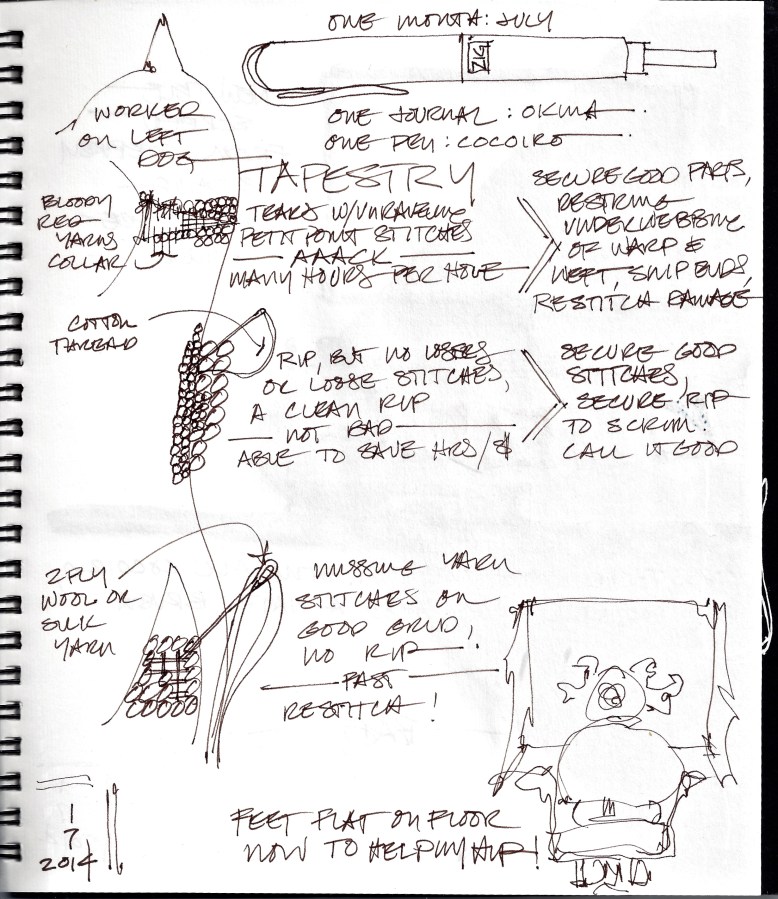 ONE MONTH: JULY
ZIG
ONE JOURNAL: OKINA
ONE PEN: COCOIRO
WORKER
ON LEFT
DOG
TAPESTRY
BLOODY
RED
YARNS
COLLAR
TEARS W/UNRAVELING
PETIT POINT STITCHES
AAACK
MANY HOURS PER HOLE
SECURE GOOD PARTS,
RESTRING
UNDERWEBBING
OF WARP &
WEFT, SNIP ENDS,
RESTITCH DAMAGE
COTTON
THREAD
RIP, BUT NO LOSSES
OR LOOSE STITCHES,
A CLEAN RIP
NOT BAD
ABLE TO SAVE HRS/$
SECURE GOOD
STITCHES,
SECURE RIP
TO SCRIM:
CALL IT GOOD
2 PLY
WOOL OR
SILK
YARN
MISSING YARN
STITCHES ON
GOOD GRID,
NO RIP
FAST
RESTITCH!
1
7
2014
FEET FLAT ON FLOOR
NOW TO HELP MY HIP!